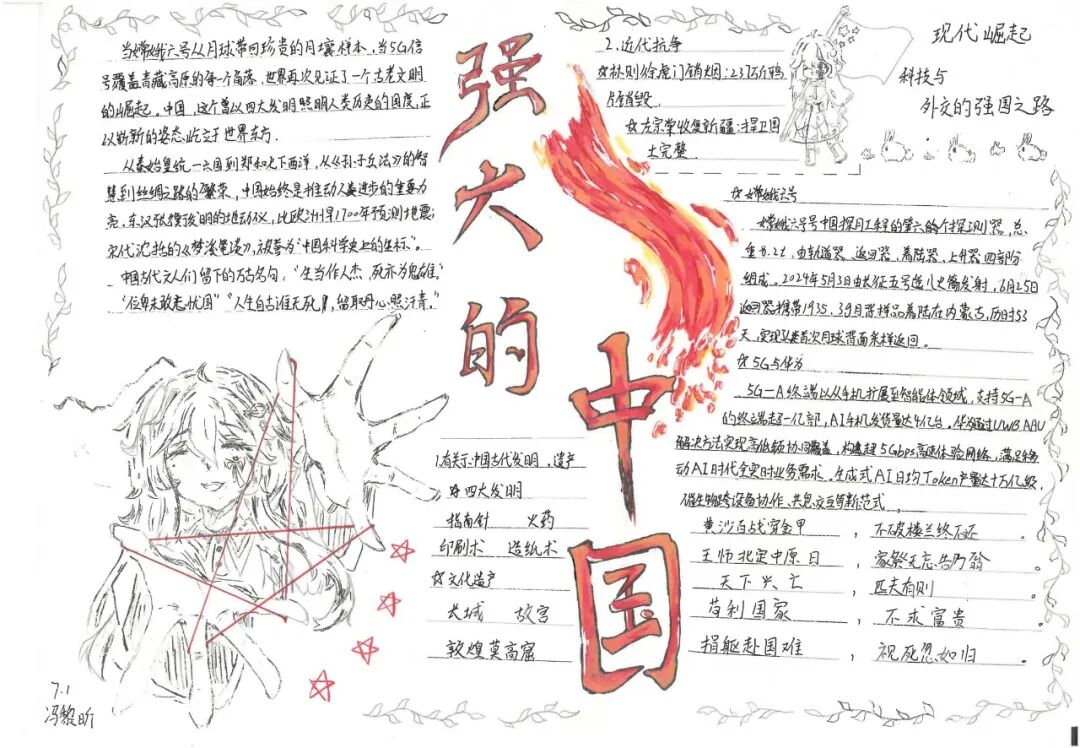 当嫦娥六号从月球带回珍贵的月壤样本，当5G信
号覆盖青藏高原的每个角落，世界再次见证了一个古老文明
的崛起。中国，这个曾以四大发明照明人类历史的国度，正
以崭新的姿态屹立于世界东方.
从秦始皇统一六国到郑和下西洋，从《孙子兵法》的智
慧到丝绸之路的繁荣，中国始终是推动人类进步的重要力
亮，东汉张衡发明的地动仪，比欧洲早1700年预测地震；
宋代沈括的《梦溪笔谈》，被誉为"中国科学史上的坐标"。
中国古代文人们留下的万古名句："生当作人杰，死亦为鬼雄，"
"位卑未敢忘忧国""人生自古谁无死，留取丹心照汗青。"
强大的
中国
1.有关示中国古代发明、遗产
☆四大发明
指南针 火药
印刷术 造纸术
☆文化遗产
长城 故宫
敦煌莫高窟
2.近代抗争
☆林则徐虎门销烟：237万斤鸦
片销毁
☆左宗棠收复新疆：捍卫国
土完整
现代崛起
科技与
外交的强国之路
☆嫦娥六号
嫦娥六号号中国探月工程的第六个探测器，总
重8.2t，由轨道器、返回器、着陆器、上升器四部份
组成。2024年5月3日由长征五号遥八火箭发射，6月25日
返回器携带1935.3g月背样品着陆在内蒙古，历时53
天，实现人类首次月球背面采样返回。
☆5G与华为
5G-A终端以从手机扩展至智能体领域，支持5G-A
的终端超一亿部，AI手机发货量达4亿台。华为通过UWB AAU
解决方法实现高低频协同覆盖，构建超5Gbps高速体验网络，满足移
动AI时代全实时业务需求。生成式AI日均Token产量达十万亿级，
催生物跨设备协作、共息交互等新范式。
黄沙百战穿金甲，不破楼兰终不还。
王师北定中原日，家祭无忘告乃翁。
天下兴亡，匹夫有则。
苟利国家，不求富贵。
捐躯赴国难，视死忽如归。
7.1
冯黎昕